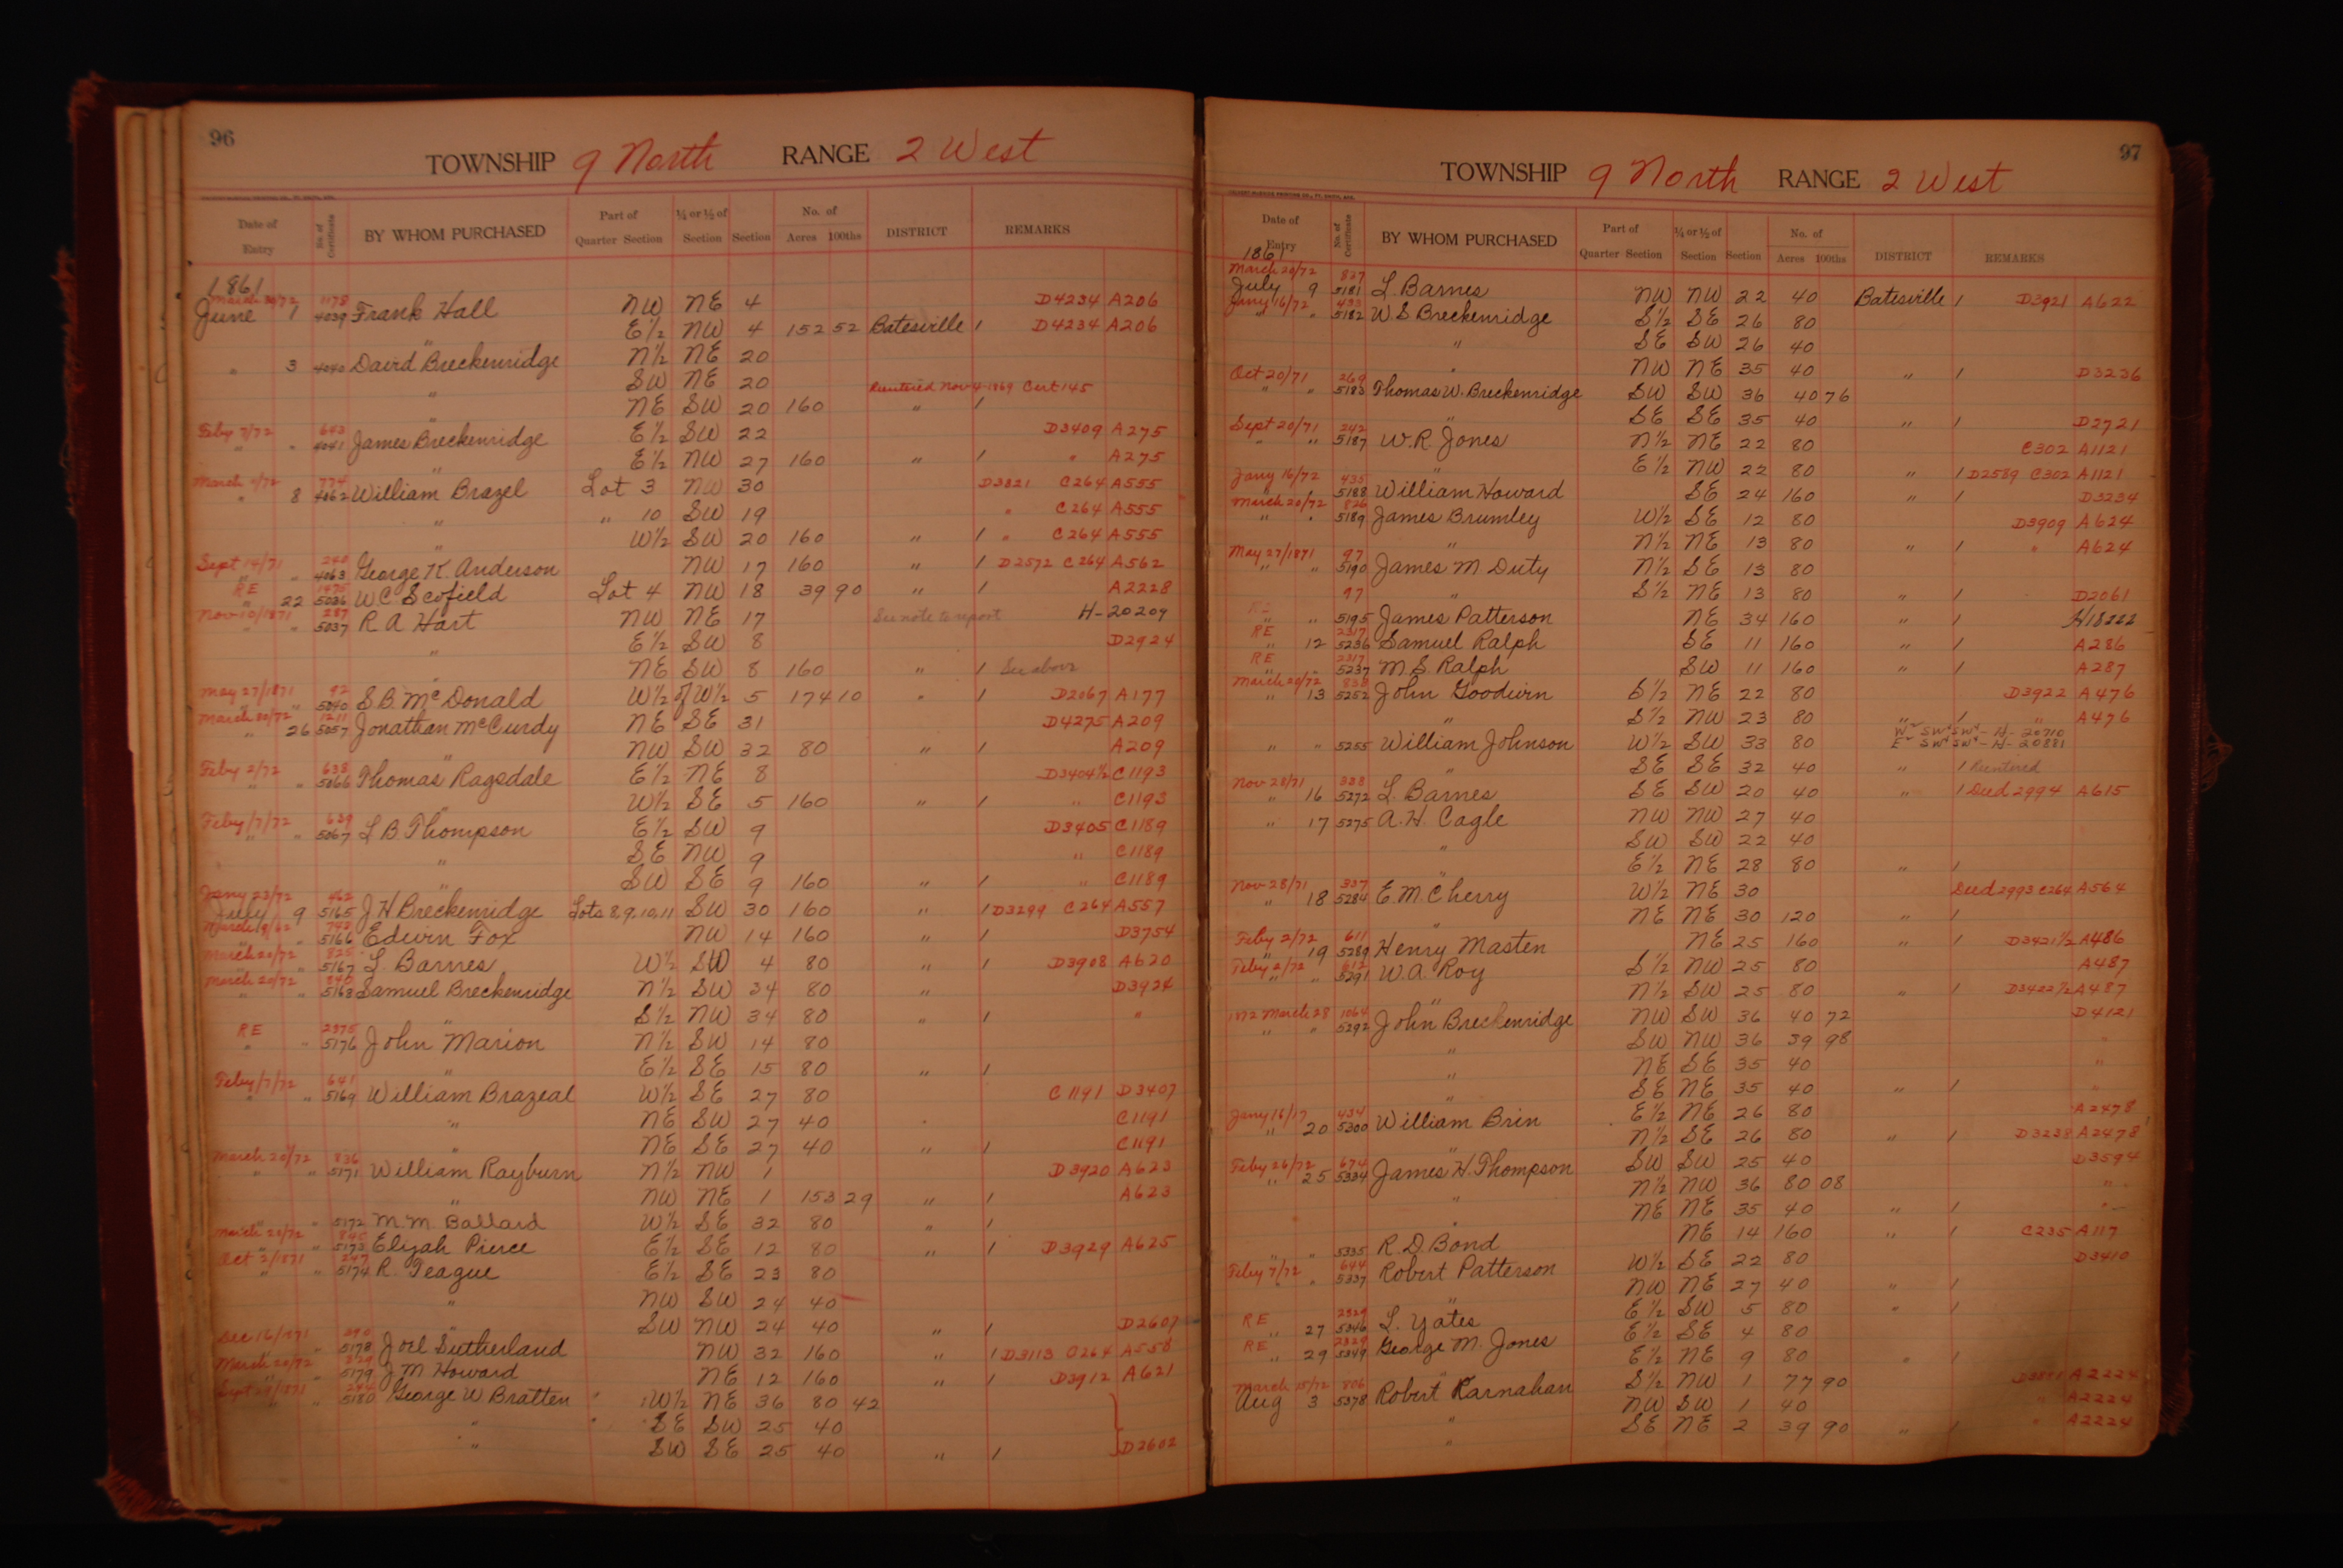 96
TOWNSHIP 9 North RANGE 2 West
Date of Entry No. of Certificate BY WHOM PURCHASED Part of Quarter Section ¼ or ½ of Section Section No. of Acres 100ths DISTRICT REMARKS
1861
March 30/72 1178
June 1 4039 Frank Hall NW NE 4 D4234 A206
E½ NW 4 152 52 Batesville 1 D4234 A206
" 3 4040 David Breckenridge N½ NE 20
" SW NE 20 Reentered Nov 4-1869 Cert 145
" NE SW 20 160 " 1
Feby 7/72 643
" " 4041 James Breckenridge E½ SW 22 D3409 A275
" E½ NW 27 160 " 1 " A275
March 9/72 774
" 8 4062 William Brazel Lot 3 NW 30 D3821 C264 A555
" " 10 SW 19 " C264 A555
" W½ SW 20 160 " 1 " C264 A555
Sept 14/71 240
" " 4063 George K. Anderson NW 17 160 " 1 D2572 C264 A562
RE 1475
" 22 5026 W C Scofield Lot 4 NW 18 39 90 " 1 A2228
Nov 10/1871 287
" " 5037 R A Hart NW NE 17 See note to report H-20209
" E½ SW 8 D2924
" NE SW 8 160 " 1 See above
May 27/1871 92
" " 5040 S. B. McDonald W½ of W½ 5 174 10 " 1 D2067 A177
March 30/72 1211
" 26 5057 Jonathan McCurdy NE SE 31 D4275 A209
" NW SW 32 80 " 1 A209
Feby 2/72 638
" " 5066 Thomas Ragsdale E½ NE 8 D3404½ C1193
" W½ SE 5 160 " 1 " C1193
Feby 7/72 639
" " 5067 L B Thompson E½ SW 9 D3405 C1189
" SE NW 9 " C1189
" SW SE 9 160 " 1 " C1189
Jany 23/72 462
July 9 5165 J H Breckenridge Lots 8, 9, 10, 11 SW 30 160 " 1 D3299 C264 A557
742
" " 5166 Edwin Fox NW 14 160 " 1 D3754
March 20/72 825
" " 5167 L. Barnes W½ SW 4 80 " 1 D3908 A620
March 20/72 840
" " 5168 Samuel Breckenridge N½ SW 34 80 " D3924
" S½ NW 34 80 " 1 "
RE 2375
" " 5176 John Marion N½ SW 14 80
" E½ SE 15 80 " 1
Feby 7/72 641
" " 5169 William Brazeal W½ SE 27 80 C1191 D3407
" NE SW 27 40 C1191
" NE SE 27 40 " 1 C1191
March 20/72 836
" " 5171 William Rayburn N½ NW 1 D3920 A623
" NW NE 1 153 29 " 1 A623
" " 5172 M. M. Ballard W½ SE 32 80 " 1
March 20/72 845
" " 5173 Elijah Pierce E½ SE 12 80 " 1 D3929 A625
Oct 2/1871 247
" " 5174 R. Teague E½ SE 23 80
" NW SW 24 40
SW NW 24 40 " 1 D2607
Dec 16/1871 390
" " 5178 Joel Sutherland NW 32 160 " 1 D3113 C264 A558
March 20/72 829
" " 5179 J M Howard NE 12 160 " 1 D3912 A621
" " 5180 George W. Bratten W½ NE 36 80 42
" SE SW 25 40
" SW SE 25 40 " 1 D2602
97
TOWNSHIP 9 North RANGE 2 West
Date of Entry No. of Certificate BY WHOM PURCHASED Part of Quarter Section ¼ or ½ of Section Section No. of Acres 100ths DISTRICT REMARKS
1861
March 20/72 827
July 9 5181 L. Barnes NW NW 22 40 Batesville 1 D3921 A622
Jany 16/72 433
" " 5182 W S Breckenridge S½ SE 26 80
" SE SW 26 40
" NW NE 35 40 " 1 D3236
Oct 20/71 269
" " 5183 Thomas W. Breckenridge SW SW 36 40 76
" SE SE 35 40 " 1 D2721
Sept 20/71 242
" " 5187 W. R. Jones N½ NE 22 80 C302 A1121
" E½ NW 22 80 " 1 D2589 C302 A1121
Jany 16/72 435
" " 5188 William Howard SE 24 160 " 1 D3234
March 20/72 826
" " 5189 James Brumley W½ SE 12 80 D3909 A624
" N½ NE 13 80 " 1 " A624
May 27/1871 97
" " 5190 James M Duty N½ SE 13 80
97 " S½ NE 13 80 " 1 D2061
" " 5195 James Patterson NE 34 160 " 1 H18222
RE 2317
" 12 5236 Samuel Ralph SE 11 160 " 1 A286
RE 2317
" " 5237 M. S. Ralph SW 11 160 " 1 A287
March 20/72 838
" 13 5252 John Goodwin S½ NE 22 80 D3922 A476
" S½ NW 23 80 " 1 " A476
W½ SW¼ SW¼ - H- 20710
" " 5255 William Johnson W½ SW 33 80 E½ SW¼ SW¼ - H- 20881
" SE SE 32 40 " 1 Reentered
Nov 28/71 338
" 16 5272 L. Barnes SE SW 20 40 " 1 Deed 2994 A615
" 17 5275 A. H. Cagle NW NW 27 40
" SW SW 22 40
E½ NE 28 80 " 1
Nov 28/71 337
" 18 5284 E. M. Cherry W½ NE 30 Deed 2993 C264 A564
" NE NE 30 120 " 1
Feby 2/72 611
" 19 5289 Henry Masten NE 25 160 " 1 D3421½ A486
Feby 2/72 612
" " 5291 W. A. Roy S½ NW 25 80 A487
" N½ SW 25 80 " 1 D3422½ A487
1872 March 28 1064
" " 5292 John Breckenridge NW SW 36 40 72 D4121
" SW NW 36 39 98 "
" NE SE 35 40 "
" SE NE 35 40 " 1 "
Jany 16/17 434
" 20 5300 William Brin E½ NE 26 80 A2478
" N½ SE 26 80 " 1 D3238 A2478
Feby 26/72 674
" 25 5334 James H. Thompson SW SW 25 40 D3594
" N½ NW 36 80 08 "
" NE NE 35 40 " 1 "
" " 5335 R. D. Bond NE 14 160 " 1 C235 A117
Feby 7/72 644
" " 5337 Robert Patterson W½ SE 22 80 D3410
" NW NE 27 40 " 1
RE 2329
" 27 5346 L. Yates E½ SW 5 80 " 1
RE 2329
" 29 5349 George M. Jones E½ SE 4 80
" E½ NE 9 80 " 1
March 15/72 806
Aug 3 5378 Robert Karnahan S½ NW 1 77 90 A2224
" NW SW 1 40 " A2224
" SE NE 2 39 90 " 1 " A2224